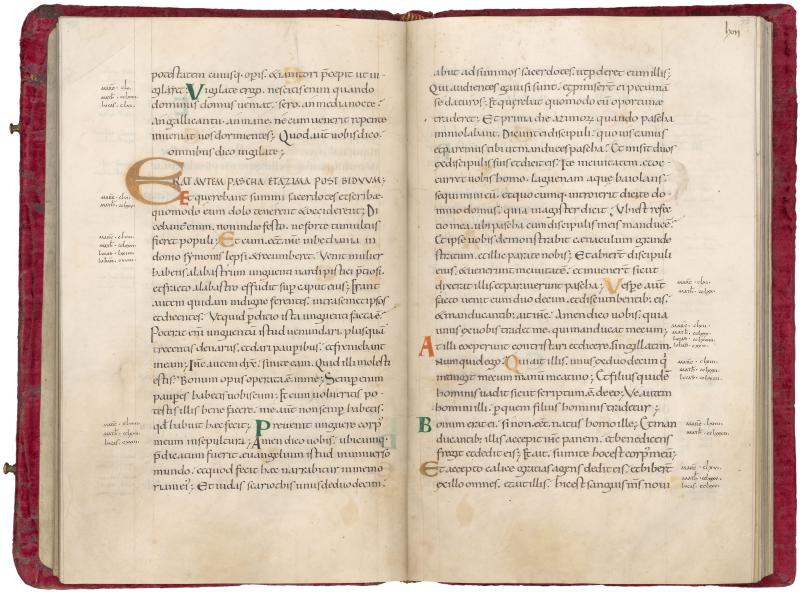 potestatem cuiusq; opis· & ianitori p̄cepit ut ui
gil&; Vigilate ergo· nescitis enim quando
dominus domus ueniat· sero· an media nocte·
an galli cantu· an mane· ne cum uenerit repente
inueniat uos dormientes; Quod aut̄ uobis dico·
omnibus dico uigilate;
ERAT AUTEM PASCHA ET AZIMA POST BIDUUM;
Et querebant summi sacerdotes et scribae
quomodo eum dolo tenerent & occiderent; Di
cebant enim· non in die festo· ne forte tumultus
fieret populi; Et cum ess& in bethania in
domo symonis leprosi· & recumber&· Venit mulier
habens alabastrum unguenti nardi pistici p̄ciosi·
et fracto alabastro effudit sup̄ caput eius; Erant
autem quidam indigne ferentes· intra semetipsos
et dicentes· Ut quid p̄ditio ista unguenti facta ē·
Poterat enī unguentū istud uenundari· plusquā
trecentis denariis· et dari pauperibus· et fremebant
in eam; Ih̄c autem dix̄· sinite eam· Quid illi molesti
estis· Bonum opus operata ē in me; Semp enim
pauperes habetis uobiscum· Et cum uolueritis po
testis illis bene facere· me aut̄ non semp habetis·
qđ habuit haec fecit; Preuenit unguere corp'
meum in sepultura; Amen dico uobis· ubicunq;
p̄dicatum fuerit euangelium istud in uniuerso
mundo· et quod fecit haec narrabitur in memo
riam ei'; Et iudas scariothis unus de duodecim·
abiit ad summos sacerdotes· ut proder& eum illis;
Qui audientes gauisi sunt· et promiserunt ei pecuniā
se daturos; Et querebat quomodo eū oportune
trader&; Et prima die azimorū quando pascha
immolabant· Dicunt ei discipuli· quo uis eamus
et paremus tibi ut manduces pascha; Et misit duos
ex discipulis suis et dicit eis· Ite in ciuitatem· et oc
curr& uobis homo lagenam aque baiolans·
sequimini eū· et quocumq; introierit dicite do
mino domus· quia magister dicit; Ubi est refec
tio mea· ubi pascha cum discipulis meis manducē·
Et ipse uobis demonstrabit caenaculum grande
stratum· et illic parate nobis; Et abierunt discipuli
eius· et uenerunt in ciuitatē· et inuenerunt sicut
dixerat illis et parauerunt pascha; Vespe aut̄
facto uenit cum duodecim· et discumbentib; eis·
& manducantib; ait ih̄c· Amen dico uobis· quia
unus ex uobis tradet me· qui manducat mecum;
At illi coeperunt contristari et dicere singillatim·
Numquid ego· Qui ait illis· unus ex duodecim q̄
intingit mecum manū in catino; Et filius quidē
hominis uadit sicut scriptum ē de eo; Ve autem
homini illi· p̄ quem filius hominis traditur;
Bonum erat ei· si non ess& natus homo ille; Et man
ducantib; illis accepit ih̄c panem· et benedicens
fregit et dedit eis; Et ait· sumite hoc est corp' meū;
Et accepto calice gratias agens dedit eis· et biberūt
ex illo omnes· et ait illis· hic est sanguis m̄s noui